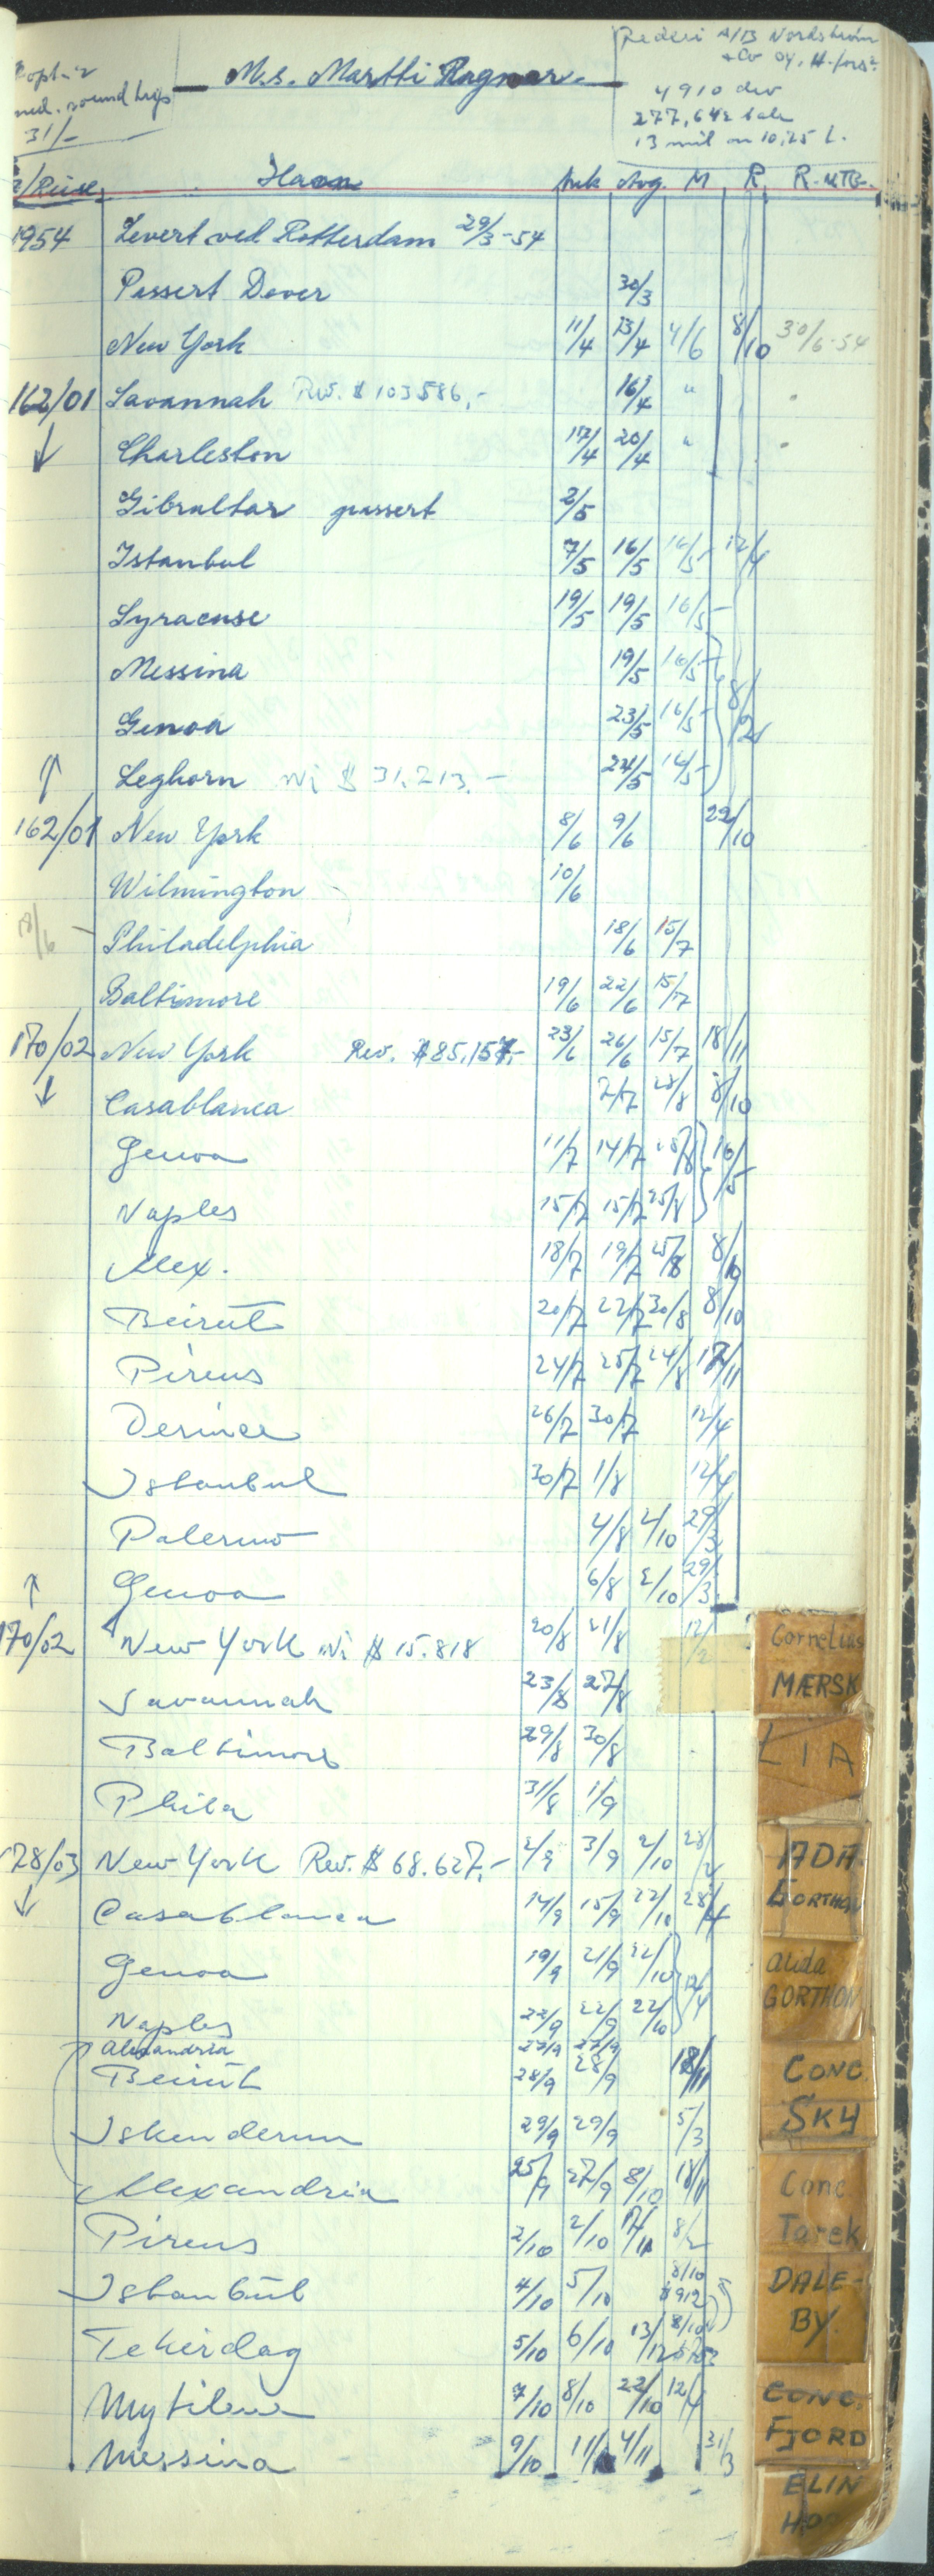 Rederi A/B Nordström
& Co OY, H-fors
opt.
med. round trips
31/-
M.s. Martti Ragnar.
4910 dw
277,642 bale
13 mil on 10,25 t.
/Reise Havn Ank Avg. M R R-MTB.
1954 Levert ved Rotterdam 29/3-54
Passert Dover 30/3
New York 11/4 13/4 4/6 8/10 30/6-54
162/01 Savannah Rev. $ 103586,- 16/4 "
↓ Charleston 17/4 20/4 "
Gibraltar passert 2/5
Istanbul 7/5 16/5 16/5 12/4
Syracuse 19/5 19/5 16/5 -
Messina 19/5 16/5
Genoa 23/5 16/5 8/2
↑ Leghorn Ni $ 31.213,- 24/5 16/5
162/01 New York 8/6 9/6 22/10
Wilmington 10/6
18/6 - Philadelphia 18/6 15/7
Baltimore 19/6 22/6 15/7
170/02 New York Rev. $ 85.157,- 23/6 26/6 15/7 18/11
↓ Casablanca 7/7 25/8 8/10
Genoa 11/7 14/7 25/8 16/5
Naples 15/7 15/7 25/8
Alex. 18/7 19/7 25/8 8/10
Beirut 20/7 22/7 30/8 8/10
Pireus 24/7 25/7 24/8 17/11
Derince 26/7 30/7 12/4
Istanbul 30/7 1/8 12/4
Palermo 4/8 4/10 29/3
↑ Genoa 6/8 2/10 29/3
170/02 New York Ni $ 15.818 20/8 21/8 12/2
Savannah 23/8 27/8
Baltimore 29/8 30/8
Phila 31/8 1/9
178/03 New York Rev. $ 68.627,- 2/9 3/9 2/10 28/2
↓ Casablanca 14/9 15/9 22/10 28/4
Genoa 19/9 21/9 22/10 12/4
Naples 22/9 22/9 22/10
Alexandria 27/9 27/9
Beirut 28/9 28/9 18/11
Iskenderun 29/9 29/9 5/3
Alexandria 25/9 27/9 8/10 18/11
Pireus 2/10 2/10 17/11 8/2
Istanbul 4/10 5/10 8/10
Tekirdag 5/10 6/10 13/12 8/10
Mytilene 7/10 8/10 22/10 12/4
Messina 9/10 11/ 4/11 31/3
Cornelius
MÆRSK
LIA
ADA
GORTHON
Alida
GORTHON
CONC.
SKY
Conc.
Tarek
DALE-
BY.
CONC.
FJORD
ELIN